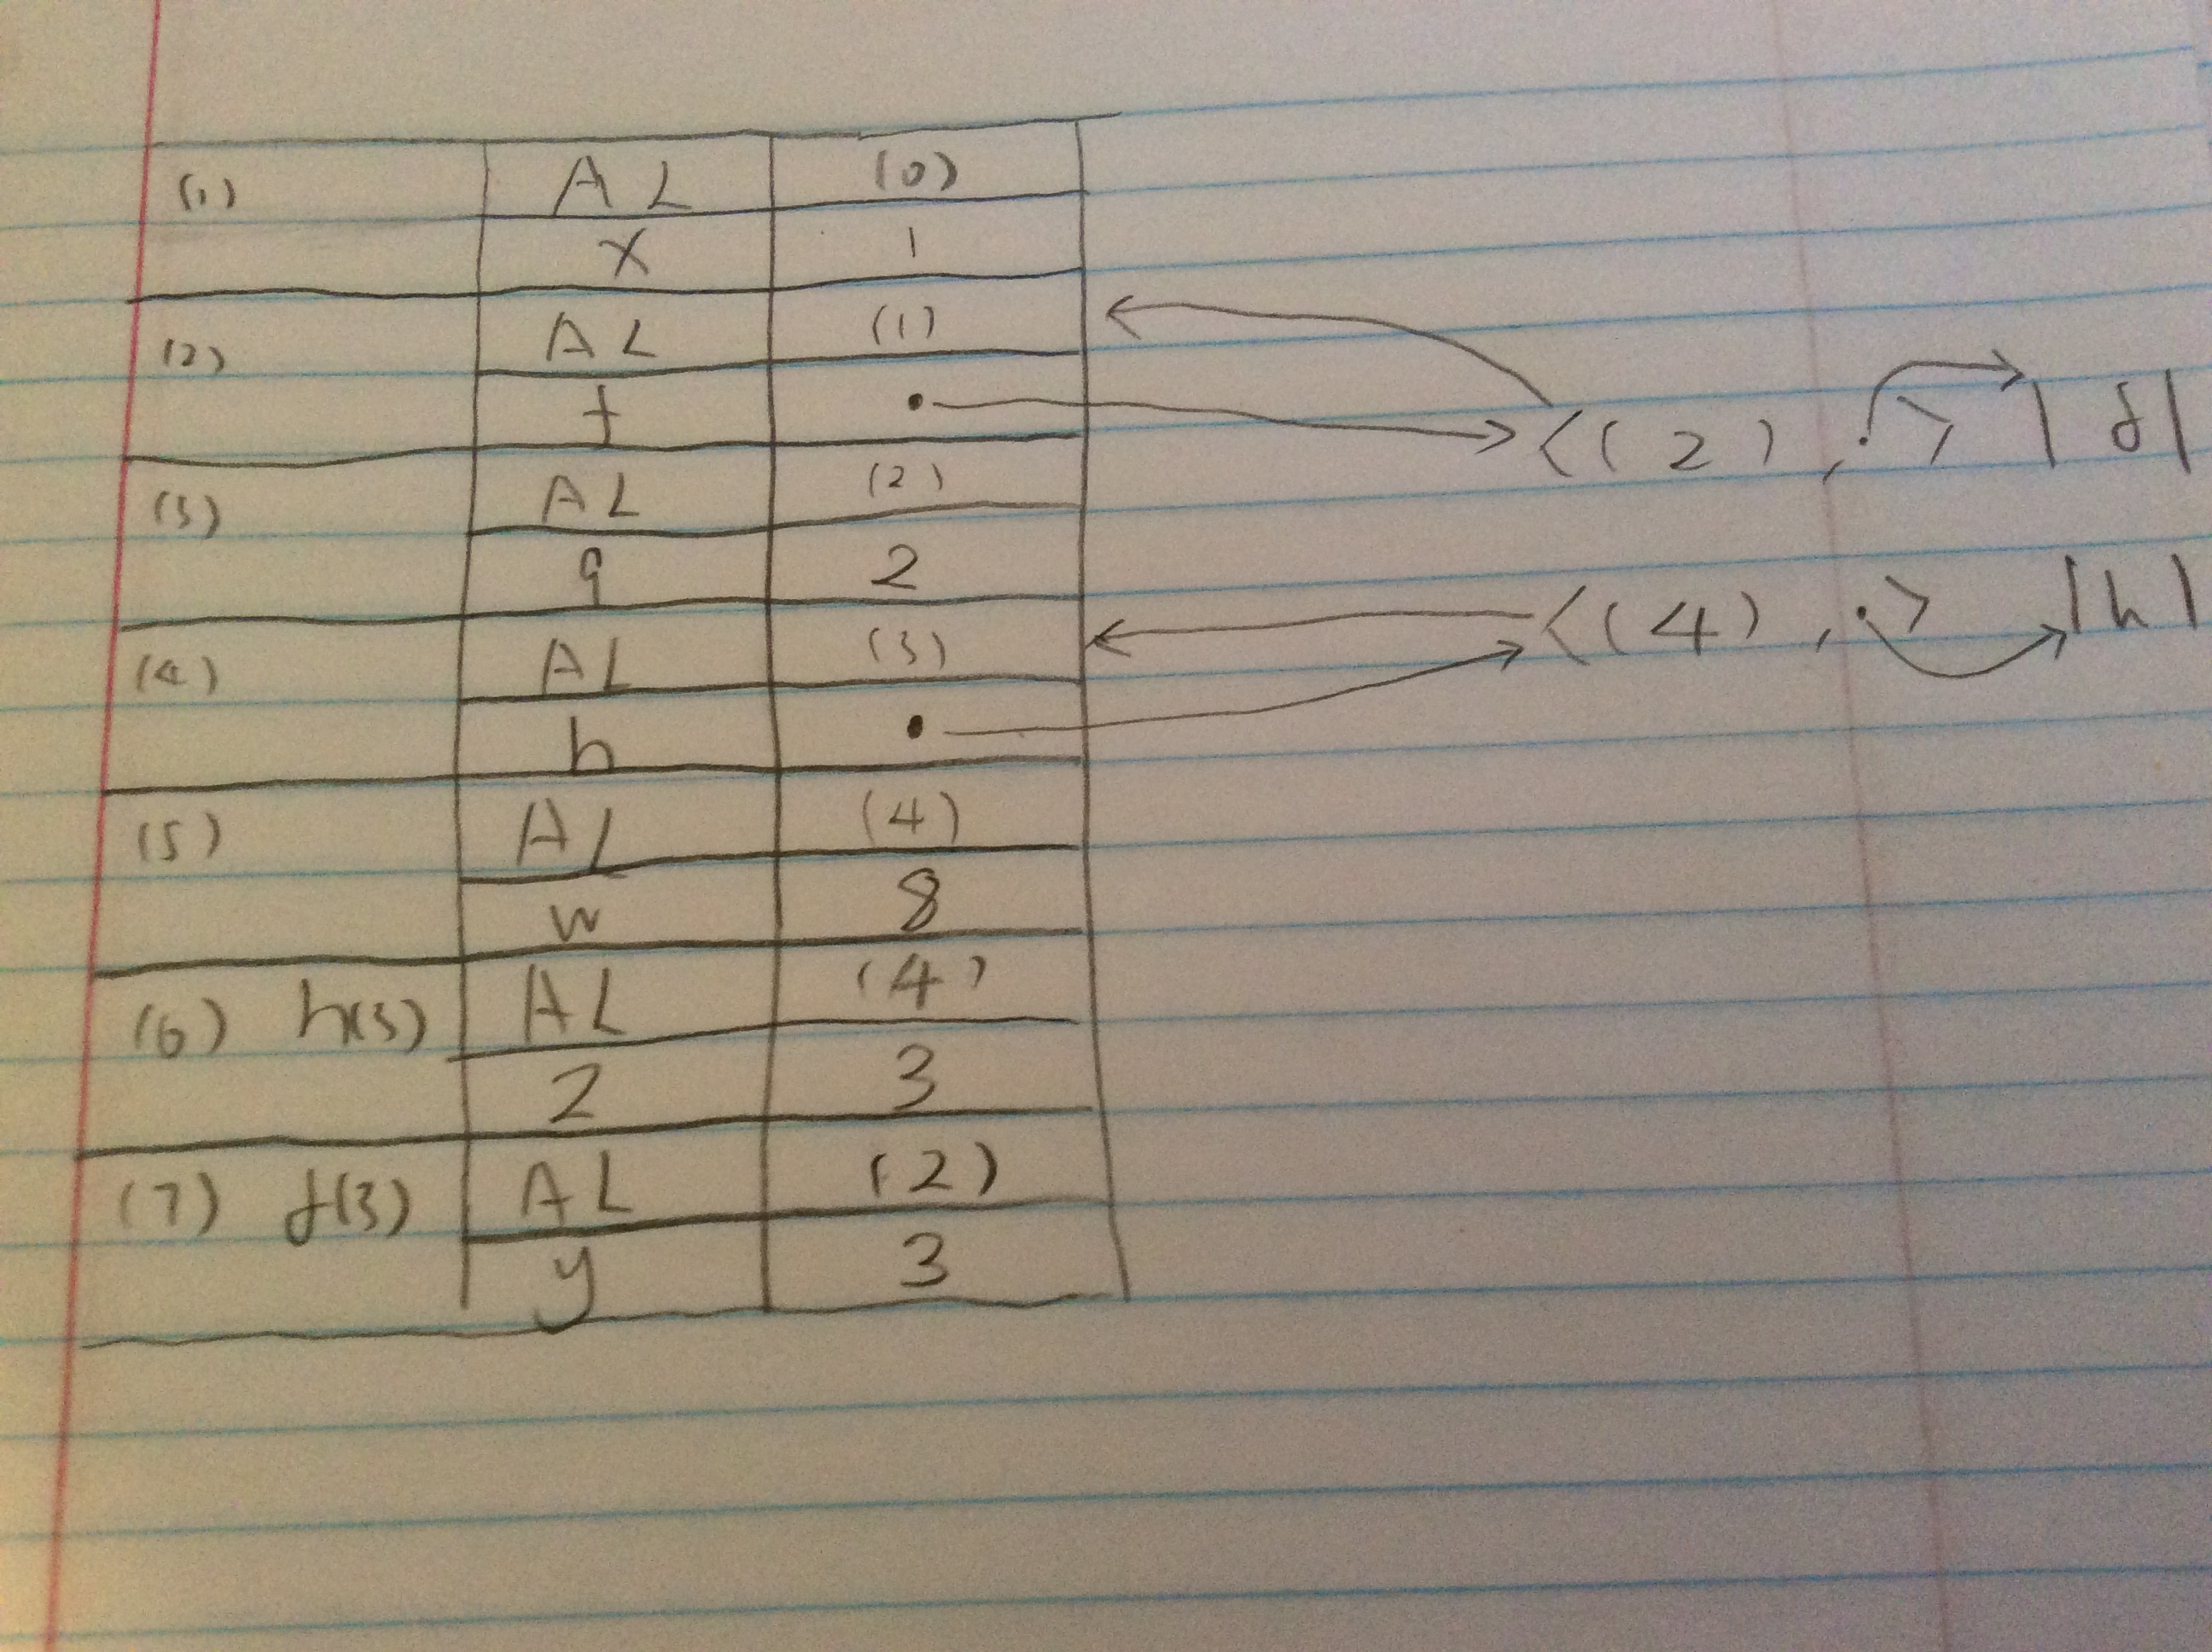 (1) AL (0)
x 1
(2) AL (1)
f • ⟨(2), •⟩ |f|
(3) AL (2)
g 2
(4) AL (3) ⟨(4), •⟩ |h|
h •
(5) AL (4)
w 8
(6) h(3) AL (4)
z 3
(7) f(3) AL (2)
y 3